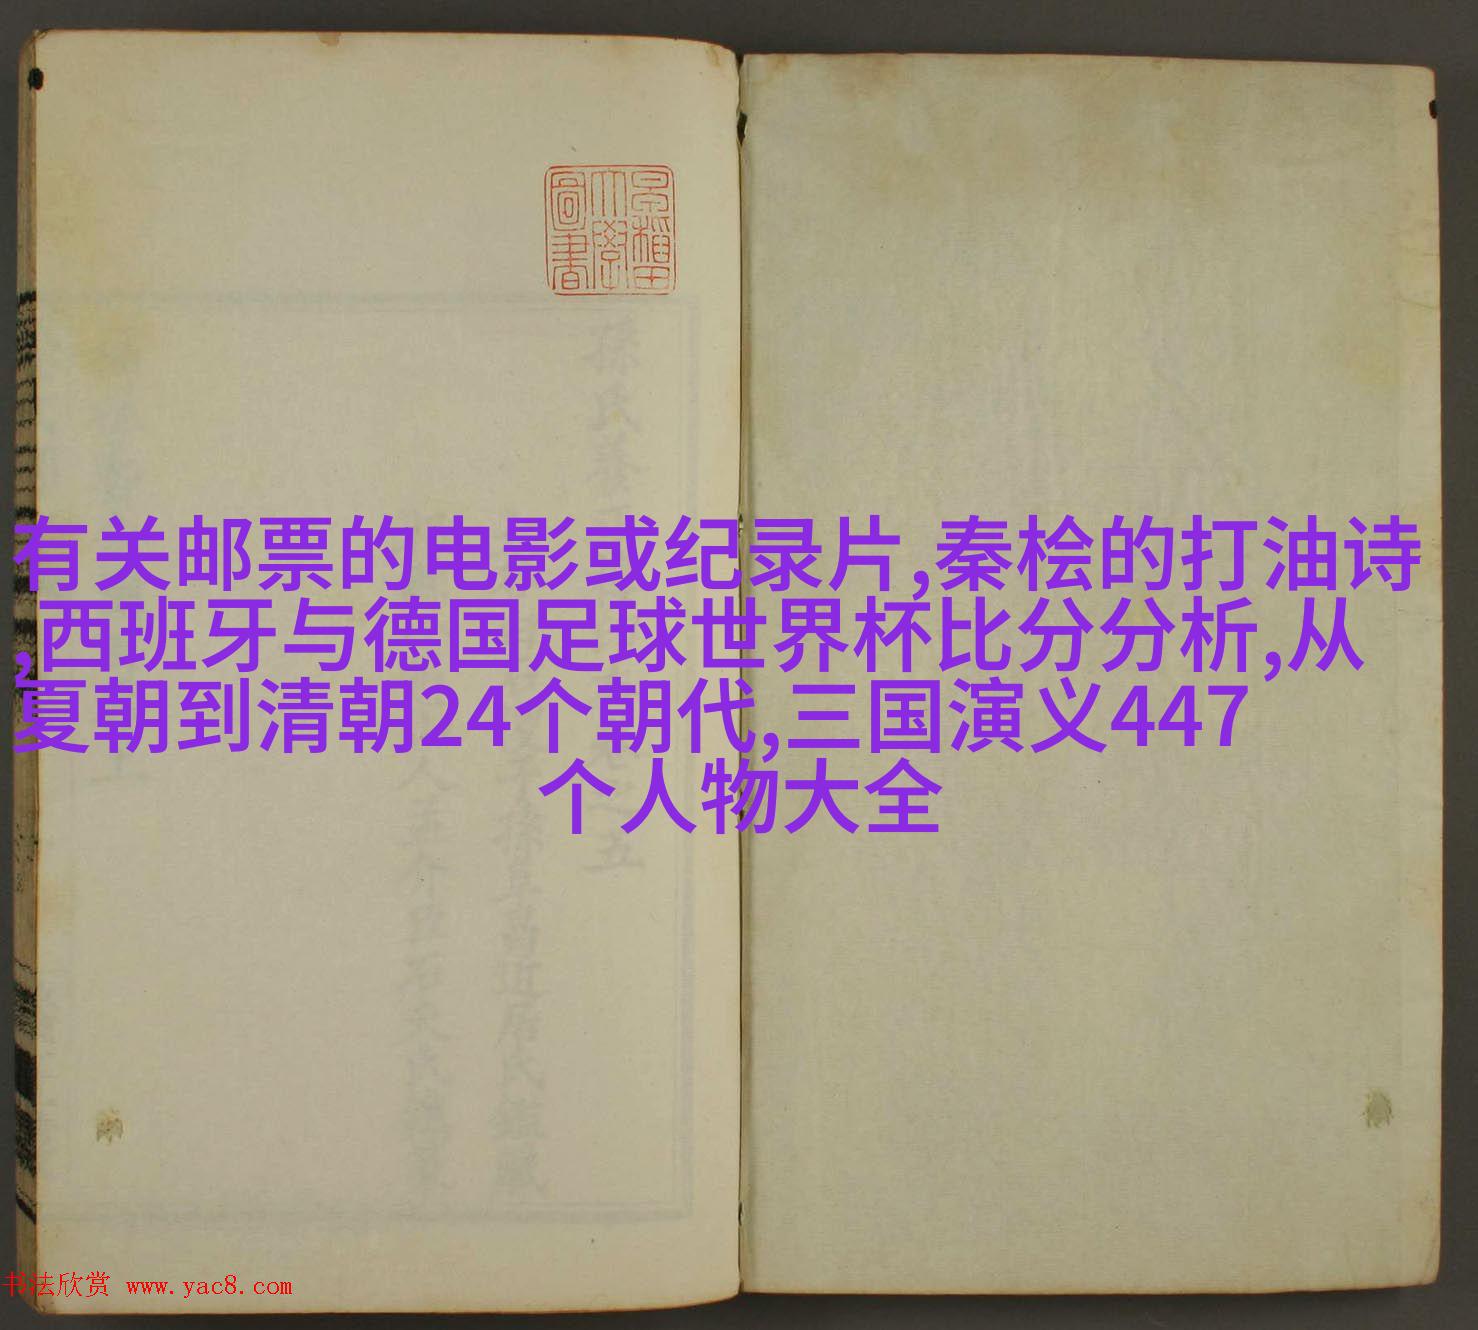 早稲田
大學
圖書
有关邮票的电影或纪录片,秦桧的打油诗
,西班牙与德国足球世界杯比分分析,从
夏朝到清朝24个朝代,三国演义447
个人物大全
书法欣赏 www.yac8.com